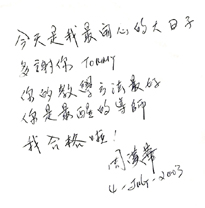 今天是我最開心的大日子
多謝你 TOMMY
你的教學方法最好
你是最醒的導師
我合格啦！
周
4-July-2003